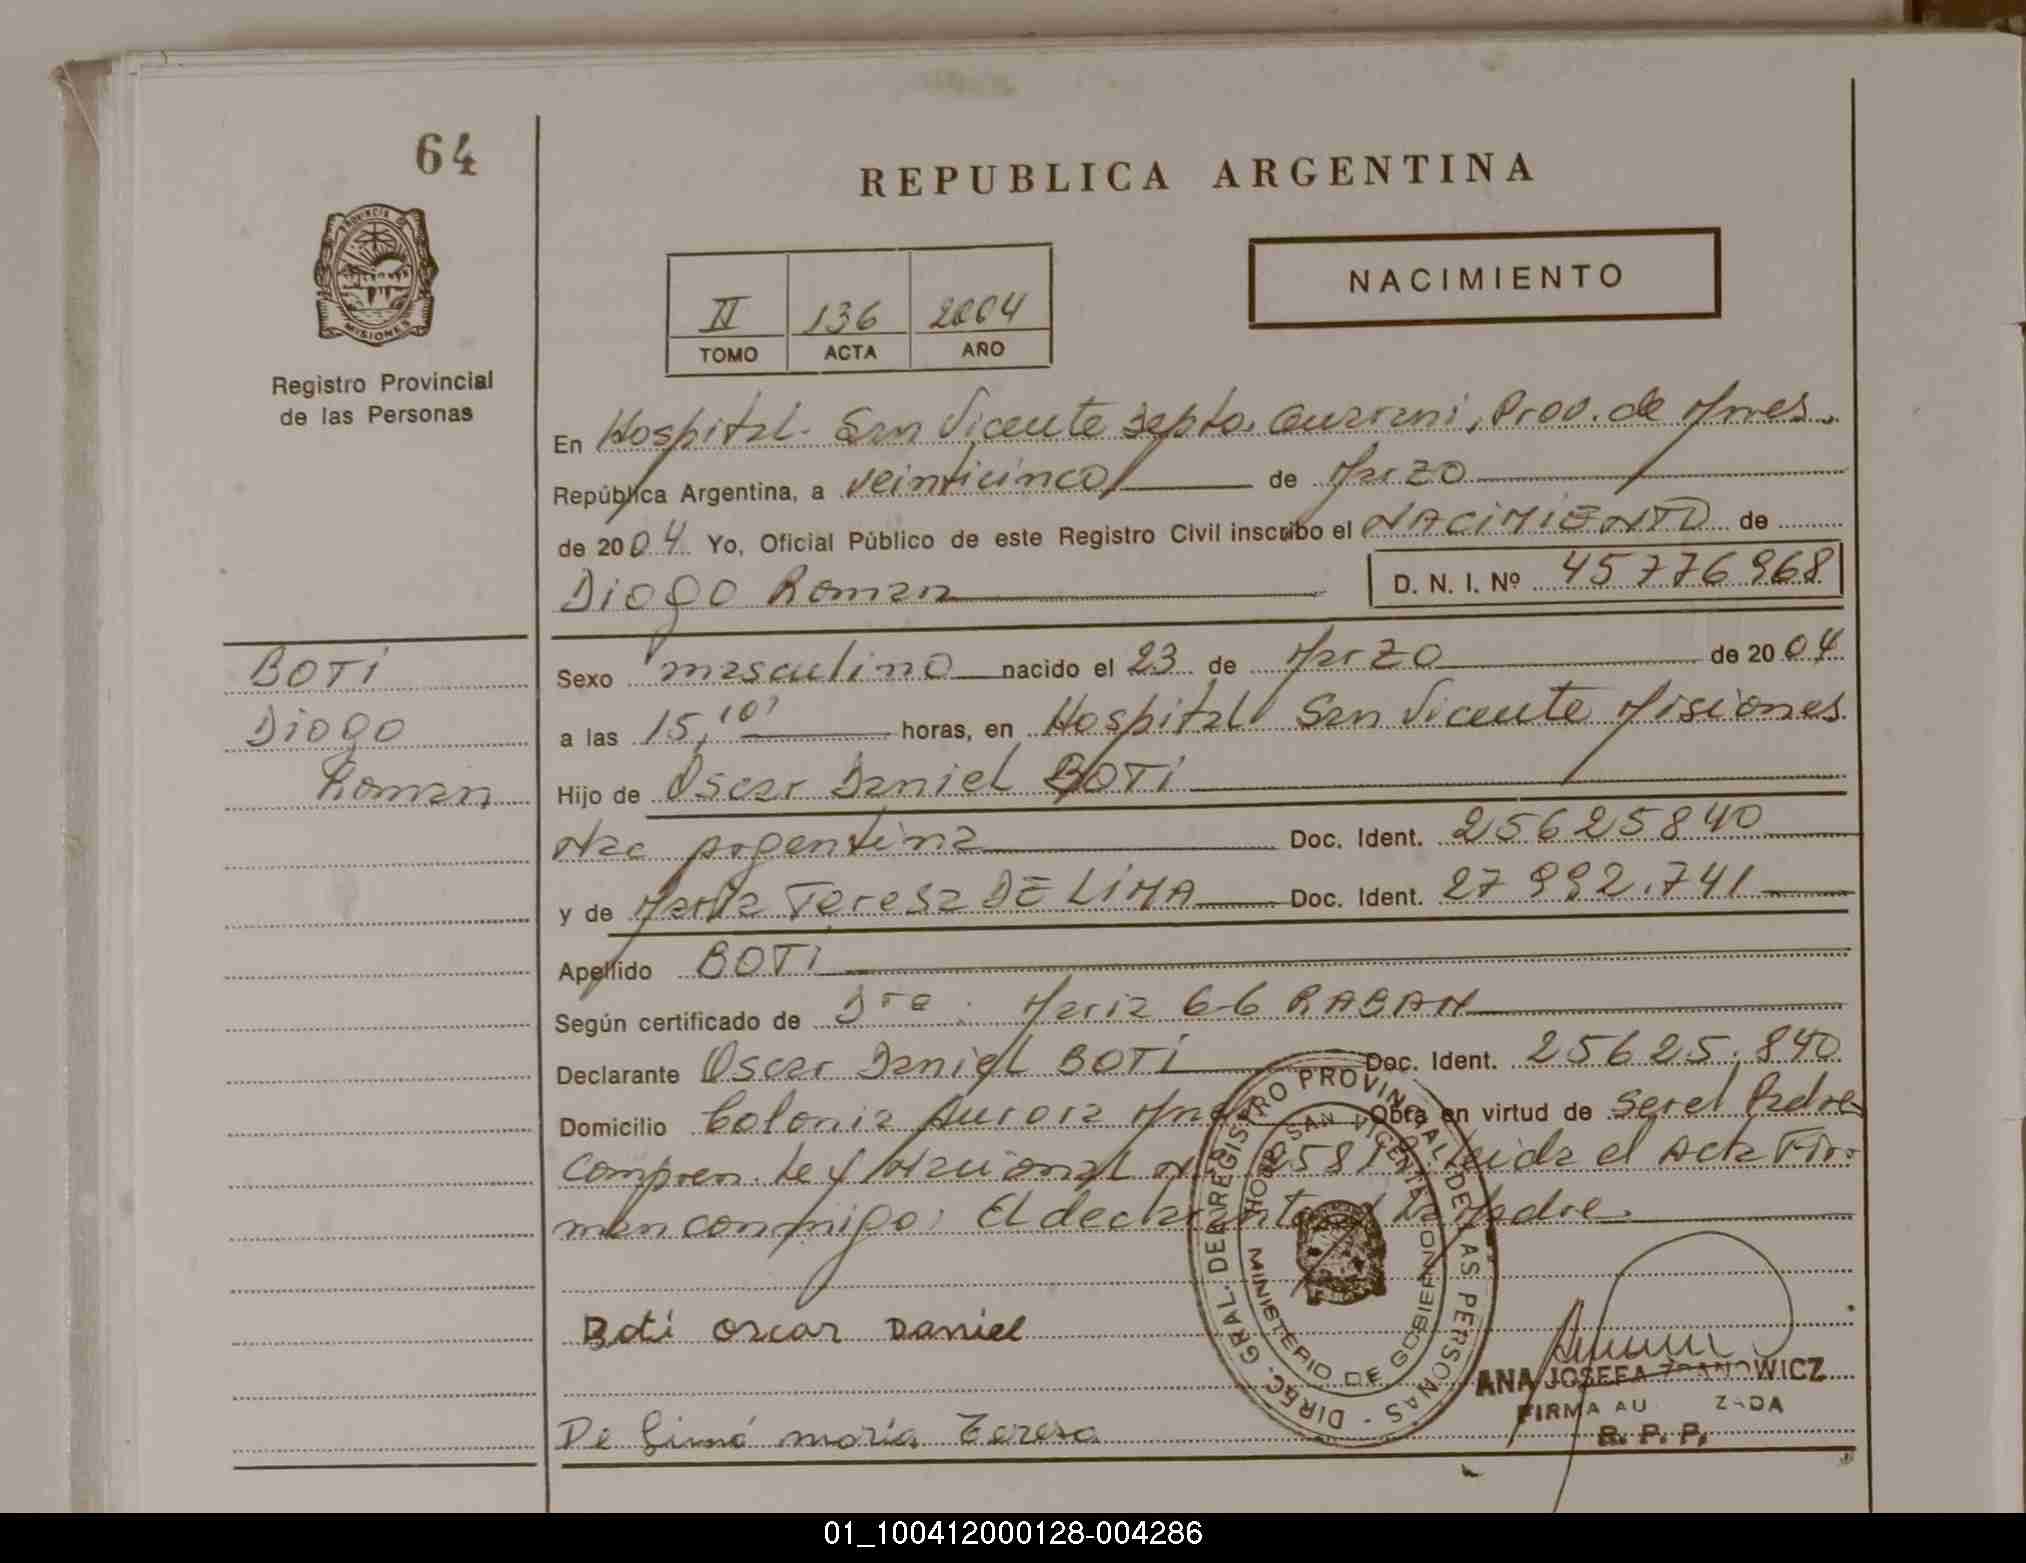 64
REPUBLICA ARGENTINA
PROVINCIA DE
MISIONES
NACIMIENTO
II 136 2004
TOMO ACTA AÑO
Registro Provincial
de las Personas
En Hospital San Vicente Depto. Guarani, Prov. de Mnes.
República Argentina, a veinticinco de Marzo
de 2004. Yo, Oficial Público de este Registro Civil inscribo el NACIMIENTO de
Diogo Roman D. N. I. Nº 45776968
BOTI
Diogo
Roman
Sexo masculino nacido el 23 de Marzo de 2004
a las 15,10' horas, en Hospital San Vicente Misiones
Hijo de Oscar Daniel BOTI
Nac Argentina Doc. Ident. 25625840
y de Maria Teresa DE LIMA Doc. Ident. 27 992.741
Apellido BOTI
Según certificado de Dra. Maria RABAN
Declarante Oscar Daniel BOTI Doc. Ident. 25625.840
Domicilio Colonia Aurora Obra en virtud de ser el Padre
Compren. Ley Nacional Leida el Acta Fir-
man conmigo: El declarante La Madre.
Boti oscar Daniel
DIREC. GRAL. DEL REGISTRO PROVINCIAL DE LAS PERSONAS
HOSP SAN VICENTE
MINISTERIO DE GOBIERNO
ANA JOSEFA
FIRMA
R. P. P.
De Lima maria Teresa
01_100412000128-004286